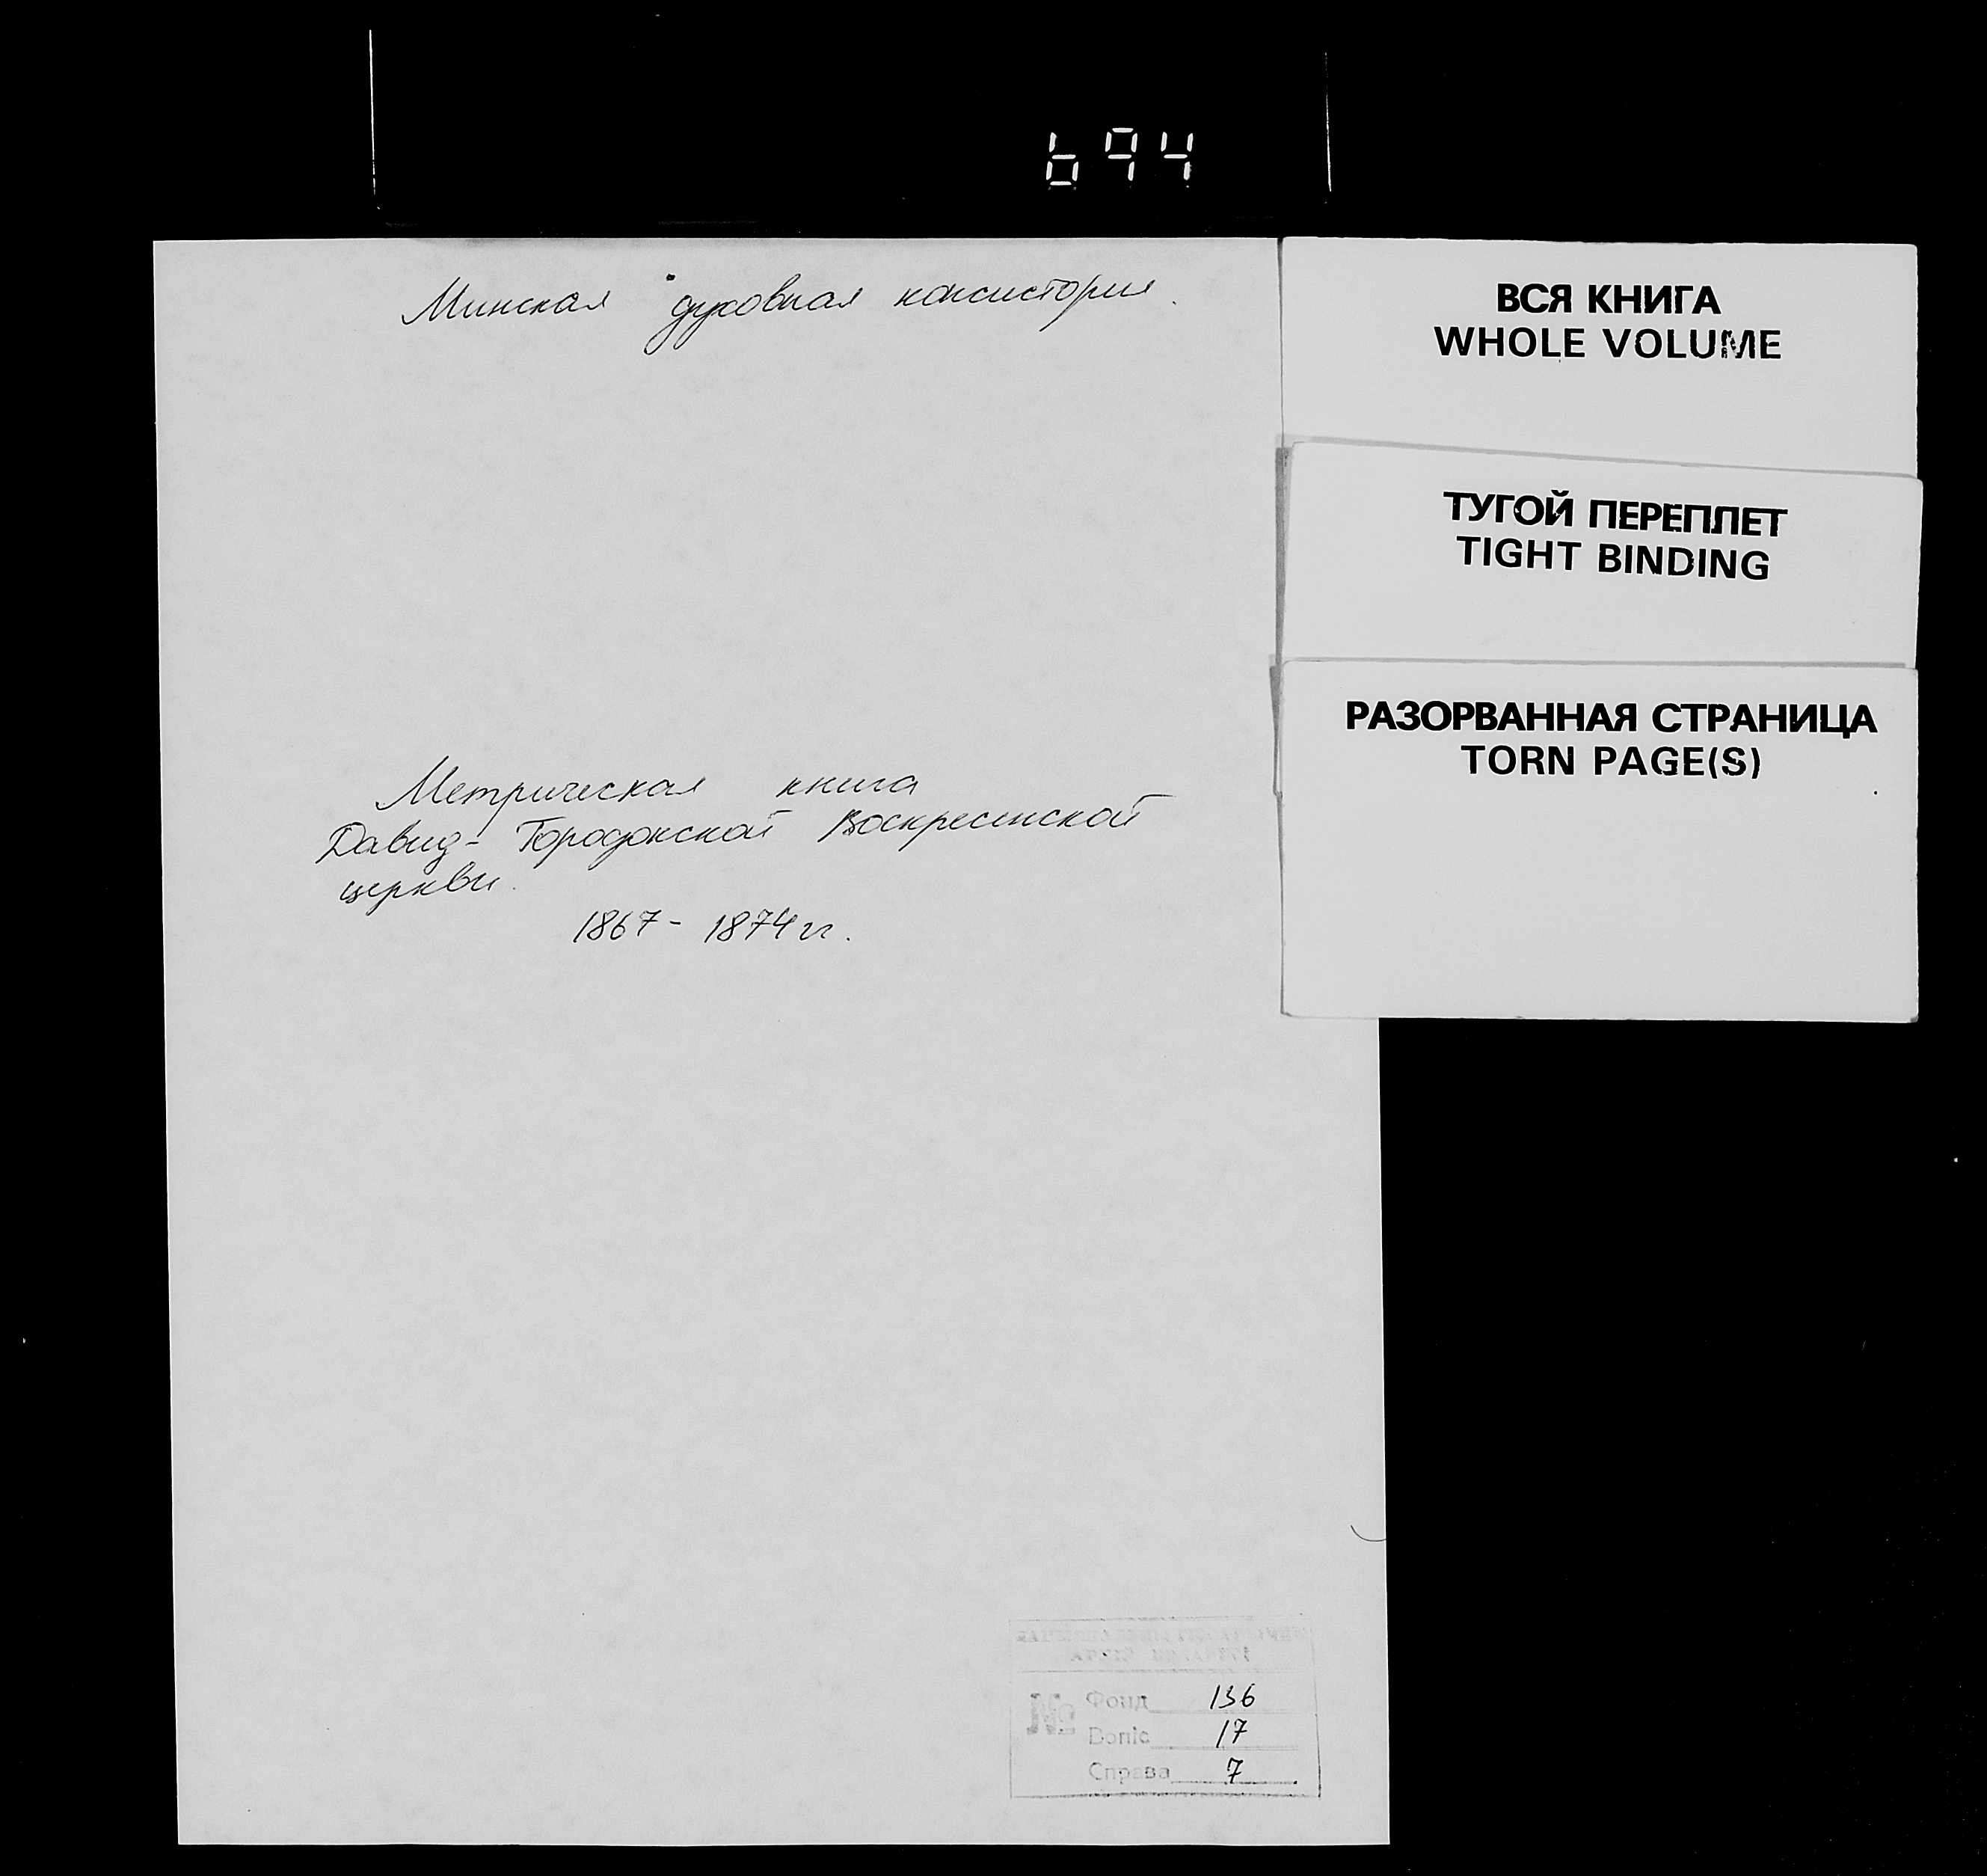 694
Минская духовная консистория.
ВСЯ КНИГА
WHOLE VOLUME
ТУГОЙ ПЕРЕПЛЕТ
TIGHT BINDING
РАЗОРВАННАЯ СТРАНИЦА
TORN PAGE(S)
Метрическая книга
Давид-Городокской Воскресенской
церкви.
1867 - 1874 гг.
№ Фонд 136
Вопіс 17
Справа 7